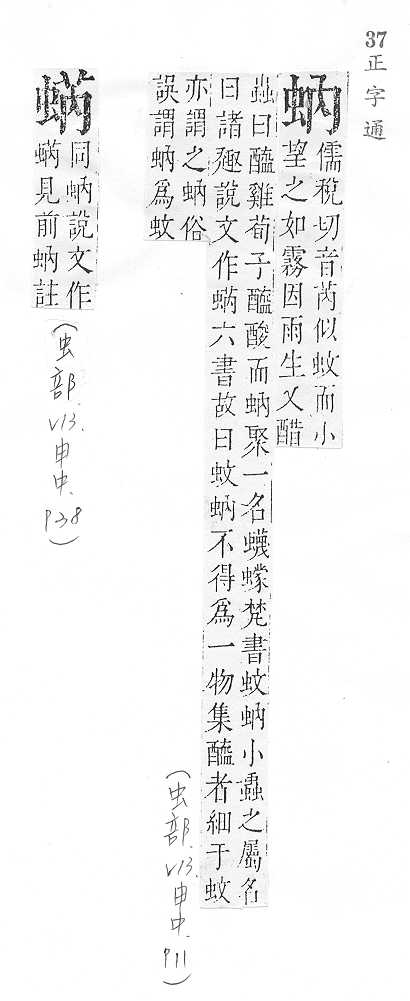 37 正字通
蚋
儒稅切音芮似蚊而小
望之如霧因雨生又醋
蟲曰醯雞荀子醯酸而蚋聚一名蠛蠓梵書蚊蚋小蟲之屬名
曰諸𧿒說文作蜹六書故曰蚊蚋不得爲一物集醯者細于蚊
亦謂之蚋俗
誤謂蚋爲蚊
(虫部.v13.申中.P11)
蜹
同蚋說文作
蜹見前蚋註
(虫部.v13.申中.P38)